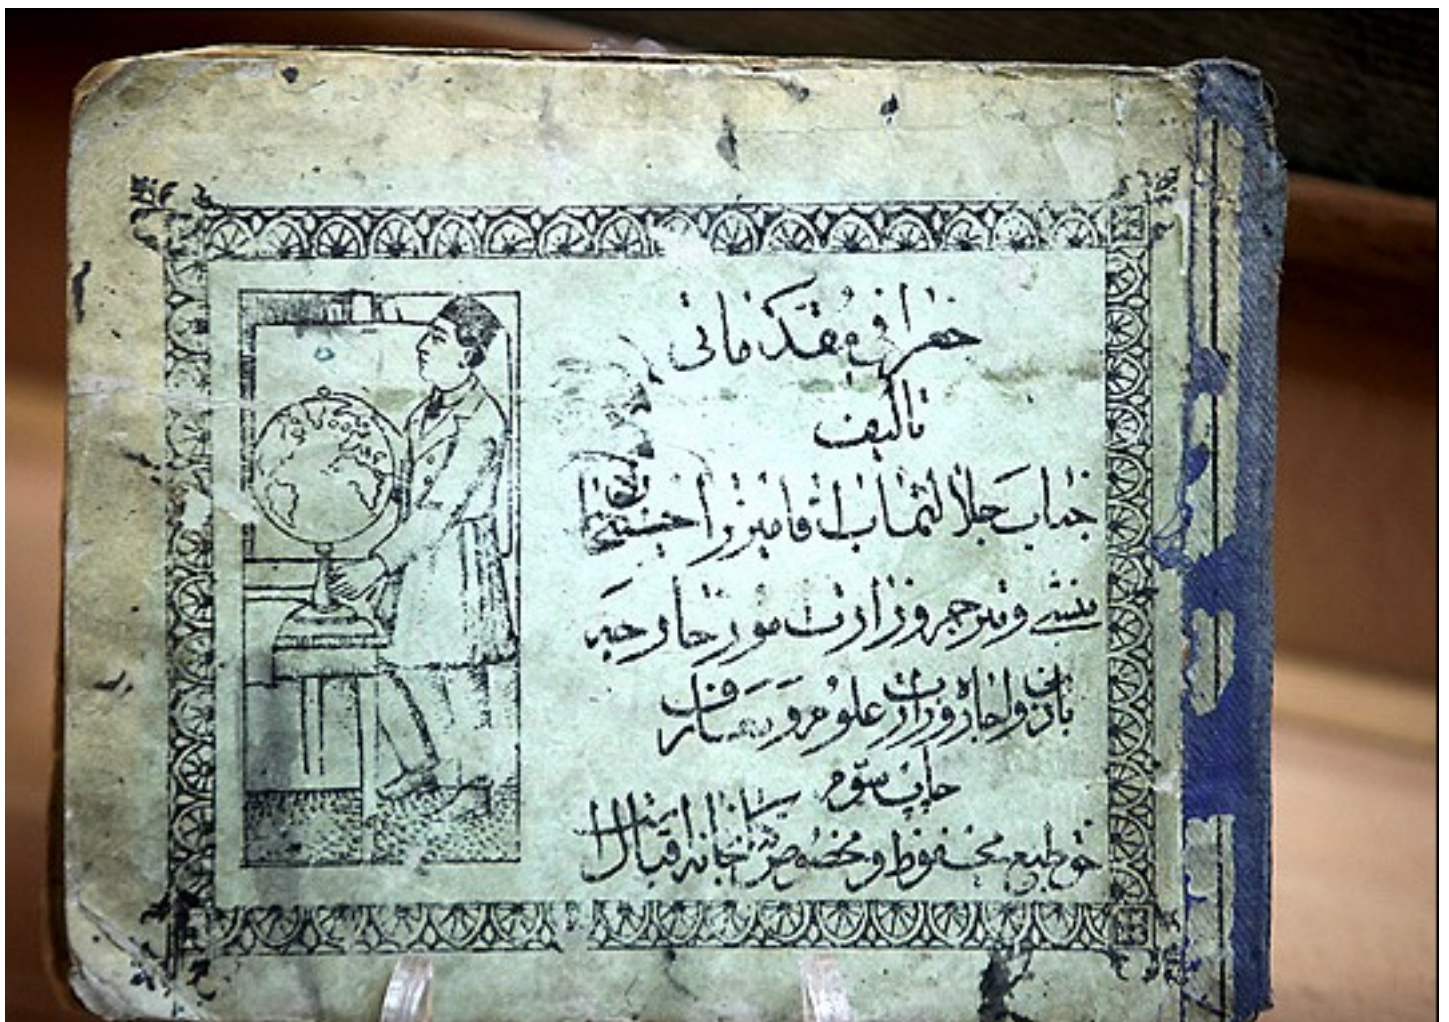 جغرافی مقدماتی
تألیف
جناب جلالتمآب آقا میرزا حسینخان
منشی و مترجم وزارت امور خارجه
باذن و اجازه وزارت علوم و معارف
چاپ سوم
حق طبع محفوظ و مخصوص کتابخانه اقبال است